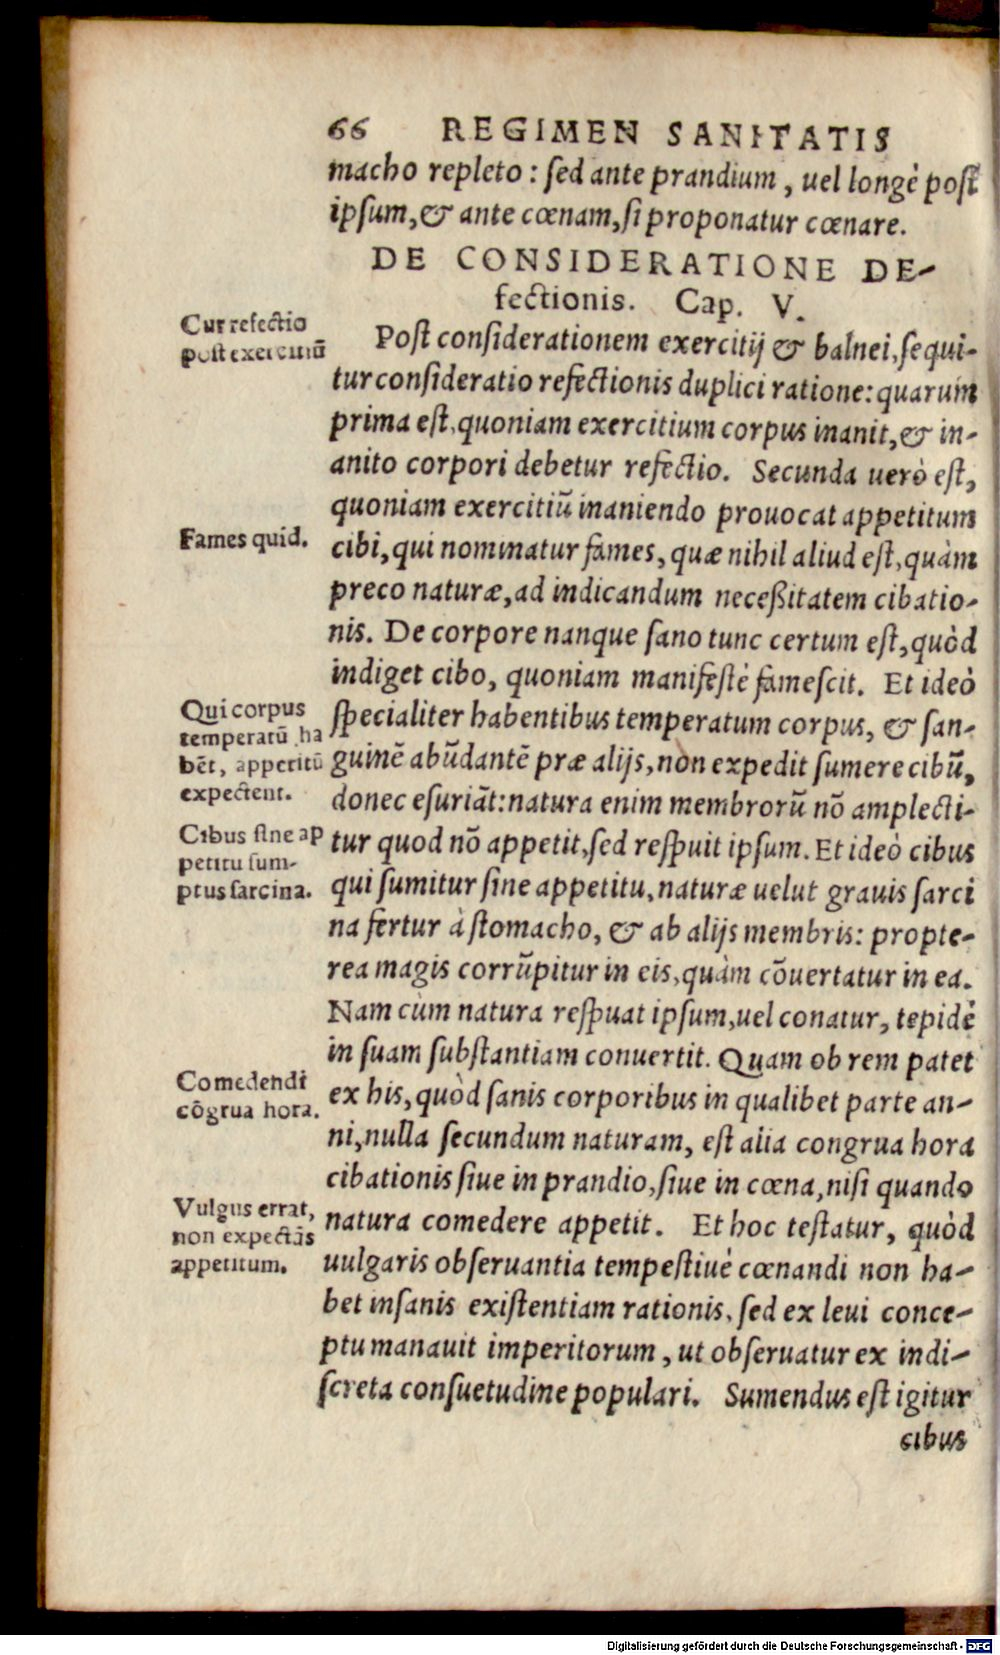 66 REGIMEN SANITATIS
macho repleto : sed ante prandium , uel longè post
ipsum, & ante cœnam, si proponatur cœnare.
DE CONSIDERATIONE DE-
fectionis. Cap. V.
Cur refectio
post exercitiũ
Post considerationem exercitij & balnei, sequi-
tur consideratio refectionis duplici ratione: quarum
prima est, quoniam exercitium corpus inanit, & in-
anito corpori debetur refectio. Secunda uerò est,
quoniam exercitiũ inaniendo prouocat appetitum
Fames quid.
cibi, qui nominatur fames, quæ nihil aliud est, quàm
preco naturæ, ad indicandum neceßitatem cibatio-
nis. De corpore nanque sano tunc certum est, quòd
indiget cibo, quoniam manifestè famescit. Et ideò
Qui corpus
temperatũ ha
bẽt, appetitũ
expectent.
specialiter habentibus temperatum corpus, & san-
guinẽ abũdantẽ præ alijs, non expedit sumere cibũ,
donec esuriãt: natura enim membrorũ nõ amplecti-
Cibus sine ap
petitu sum-
ptus sarcina.
tur quod nõ appetit, sed respuit ipsum. Et ideò cibus
qui sumitur sine appetitu, naturæ uelut grauis sarci
na fertur à stomacho, & ab alijs membris: propte-
rea magis corrũpitur in eis, quàm cõuertatur in ea.
Nam cùm natura respuat ipsum, uel conatur, tepidè
in suam substantiam conuertit. Quam ob rem patet
Comedendi
cõgrua hora.
ex his, quòd sanis corporibus in qualibet parte an-
ni, nulla secundum naturam, est alia congrua hora
cibationis siue in prandio, siue in cœna, nisi quando
Vulgus errat,
non expectãs
appetitum.
natura comedere appetit. Et hoc testatur, quòd
uulgaris obseruantia tempestiuè cœnandi non ha-
bet in sanis existentiam rationis, sed ex leui conce-
ptu manauit imperitorum , ut obseruatur ex indi-
screta consuetudine populari. Sumendus est igitur
cibus
Digitalisierung gefördert durch die Deutsche Forschungsgemeinschaft - DFG